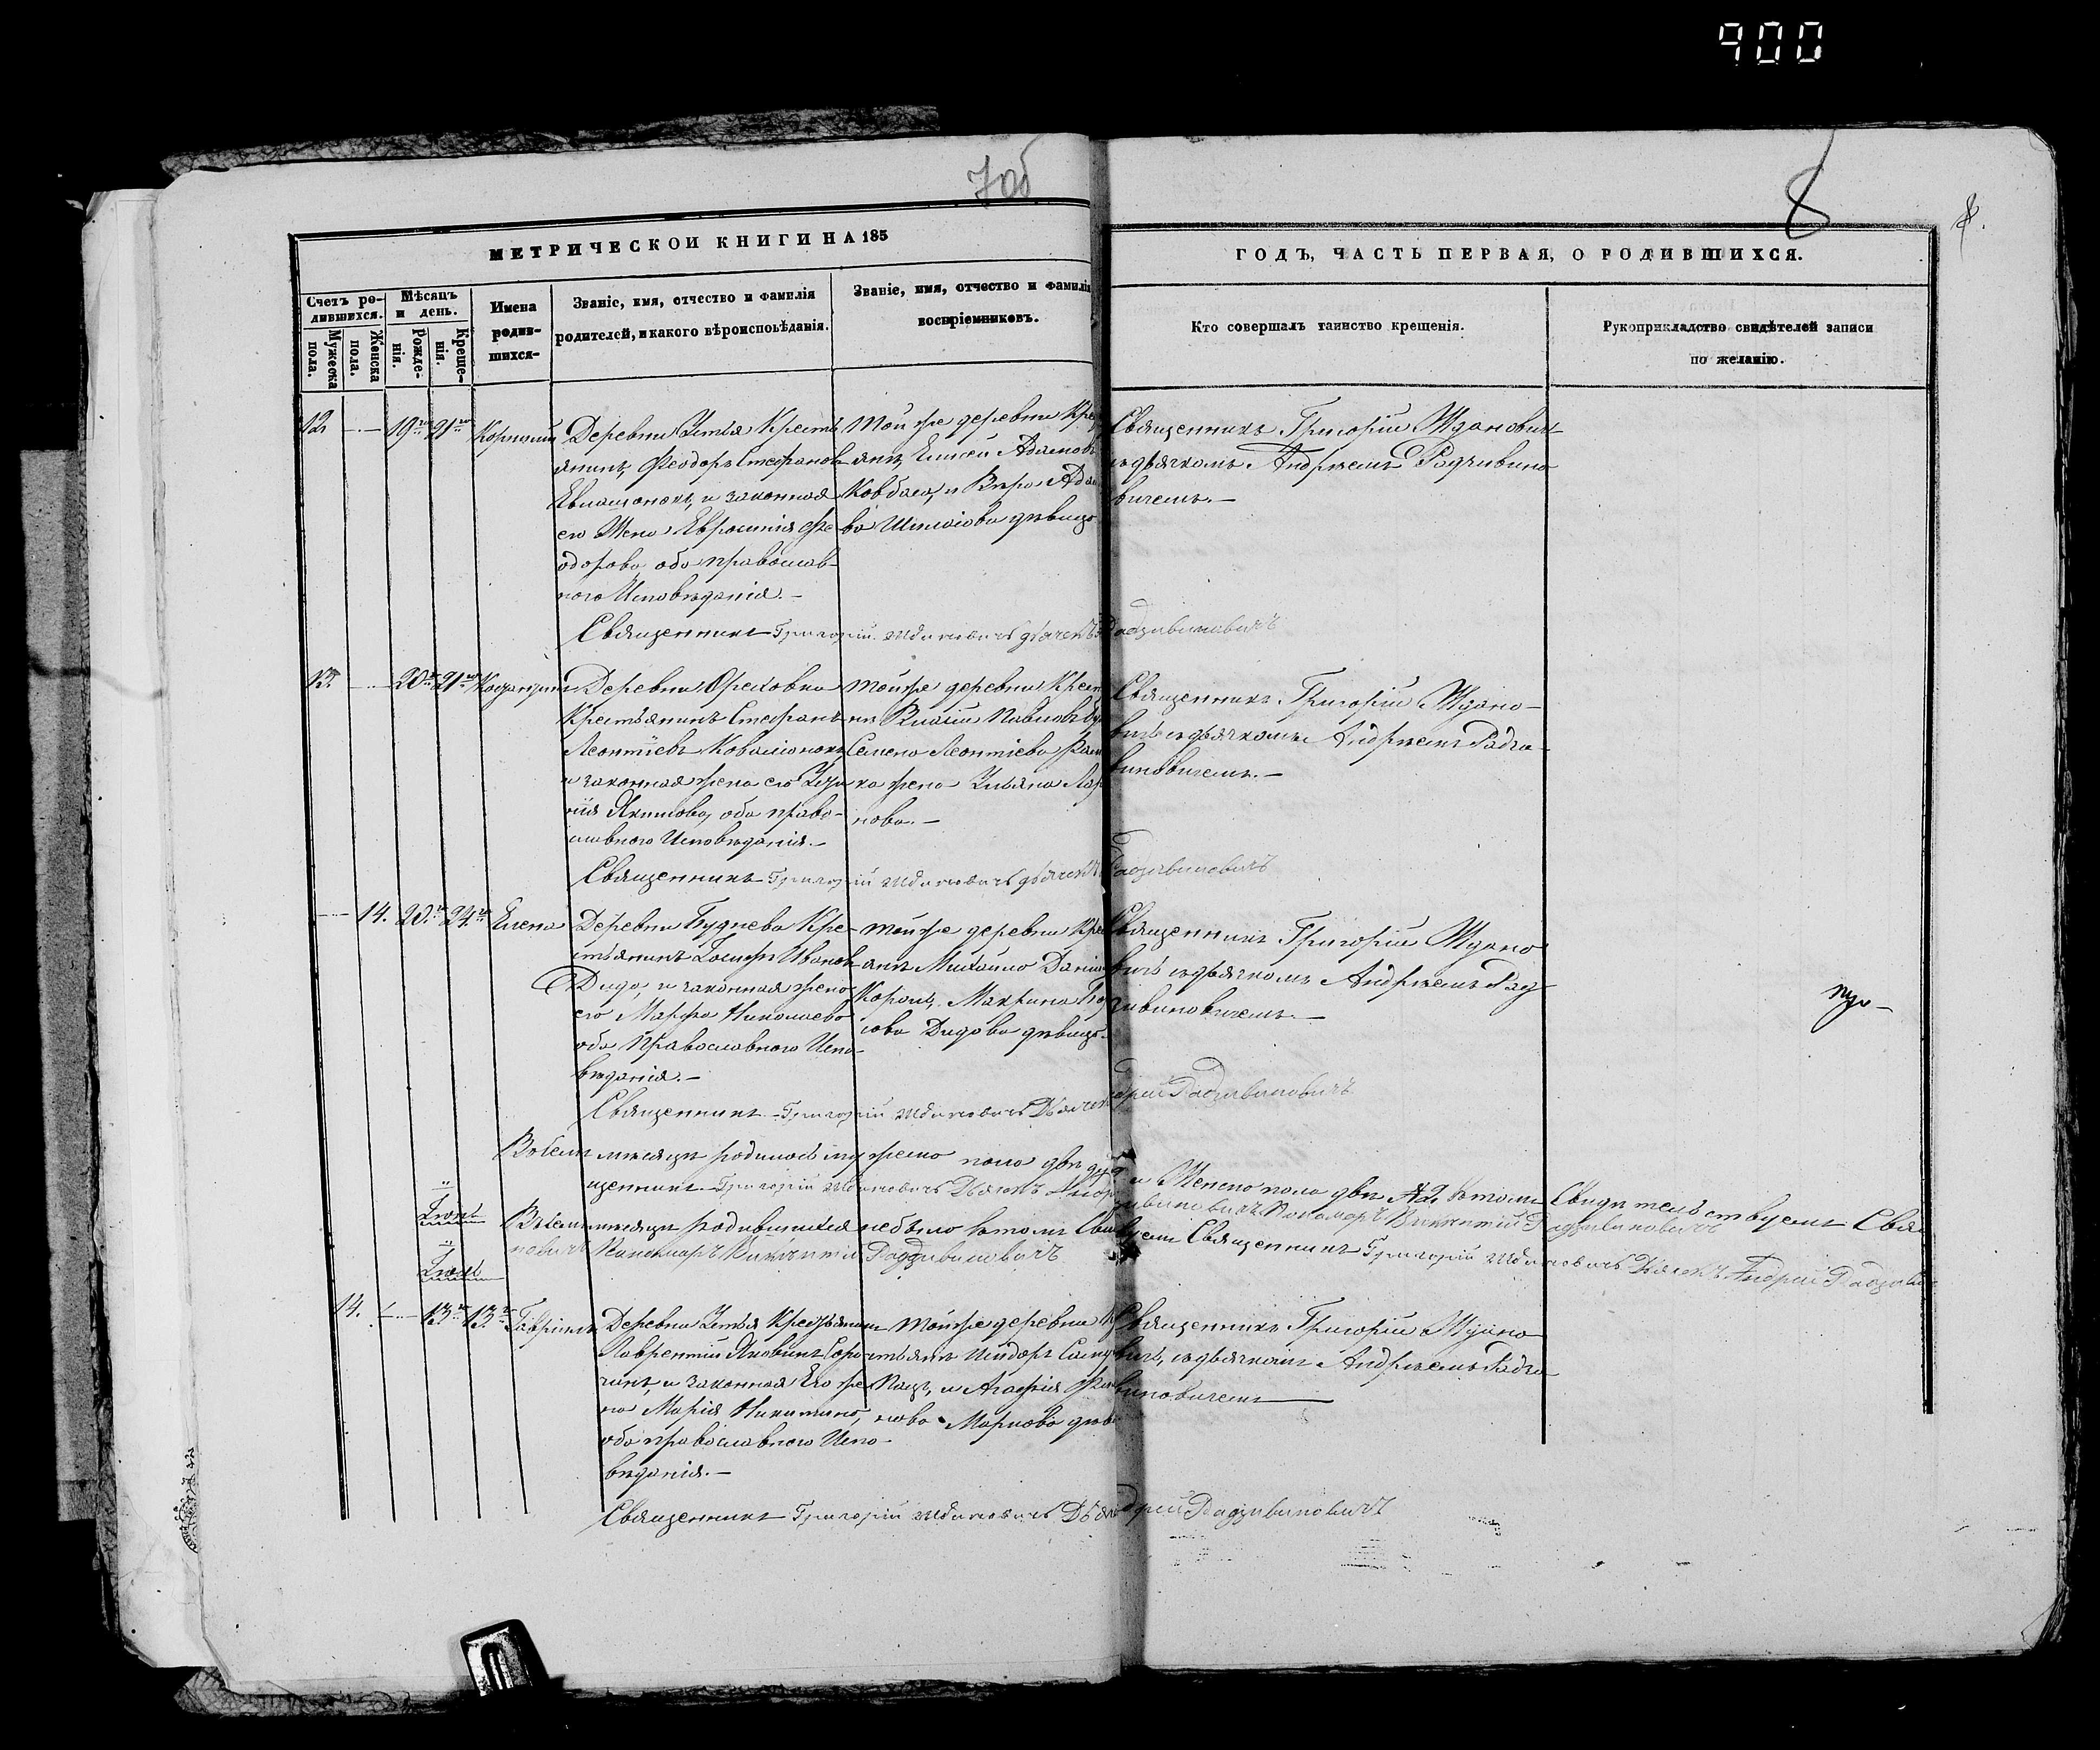 900
7об
8
8.
МЕТРИЧЕСКОЙ КНИГИ НА 185
ГОДЪ, ЧАСТЬ ПЕРВАЯ, О РОДИВШИХСЯ.
Счетъ ро-
дившихся.
Мужеска
пола.
Женска
пола.
Мѣсяцъ
и день.
Рожде-
нія.
Креще-
нія.
Имена
родив-
шихся-
Званіе, имя, отчество и фамилія
родителей, и какого вѣроисповѣданія.
Званіе, имя, отчество и фамилія
воспріемниковъ.
Кто совершалъ таинство крещенія.
Рукоприкладство свидѣтелей записи
по желанію.
12
19го
21го
Корнилій
Деревни Устья Кресть-
янинъ Феодоръ Стефановъ
и законная
его Жена Евфросинія Фе-
одорова, оба православ-
ного Исповѣданія.-
Той же деревни Кре
янъ, Елисей Адамовъ
Ковбаса, и Вѣра Адам
ва девица
Священникъ Григорій Ждановичъ
съ дьячкомъ Андреемъ Радзивино
вичемъ.-
Священникъ Григорій Ждановичъ дьячекъ Радзивиновичъ
13.
20го
21го
Деревни Ореховна
Крестьянинъ Стефанъ
Леонтіевъ Ковалионокъ
и законная жена его
нія Якимова, оба право-
славного Исповѣданія.-
той же деревни Крест
нъ Власій Павловъ
Семена Леонтіева
ка жена Ульяна
нова.-
Священникъ Григорій Ждано-
вичъ съ дьячкомъ Андреемъ Радзи-
виновичемъ.-
Священникъ Григорій Ждановичъ дьячекъ Радзивиновичъ
14.
20го
24го
Елена
Деревни Буднева Кре-
стьянинъ Іосифъ Ивановъ
Дидо, и законная жена
его Марфа Николаева
оба Православного Испо-
вѣданія.-
той же деревни Кре
янъ Михайло Дани
Король, Макрина
Дидова девица.
Священникъ Григорій Ждано
вичъ съ дьячкомъ Андреемъ Рад-
зивиновичемъ.-
Священникъ Григорій Ждановичъ Дьячекъ Андрей Радзивиновичъ
Въ семъ месяце родилось мужеско пола две душ и Женско пола две №2 въ томъ Свидетельствуемъ Свя-
щенникъ Григорій Ждановичъ Дьячекъ Андрей Радзивиновичъ Пономаръ Викентій Радзивиновичъ
Іюнь
Въ семъ месяце родившихся небыло въ томъ Свидетельствуемъ Священникъ Григорій Ждановичъ Дьячекъ Андрей Радзиви
новичъ Пономаръ Викентій Радзивиновичъ
Іюль
14.
13го
13го
Гавріилъ
Деревни Устья Крестьянинъ
Лаврентій Яковинъ Соро-
чинъ, и законная Его же-
на Марія Никитина,
оба православного Испо-
вѣданія.-
Той же деревни К
стьянъ Исидоръ
Пацъ, и Агафія
нова Маркова дѣв
Священникъ Григорій Ждано
вичъ, съ дьячкомъ Андреемъ Радзи-
виновичемъ
Священникъ Григорій Ждановичъ Дьячекъ Андрей Радзивиновичъ